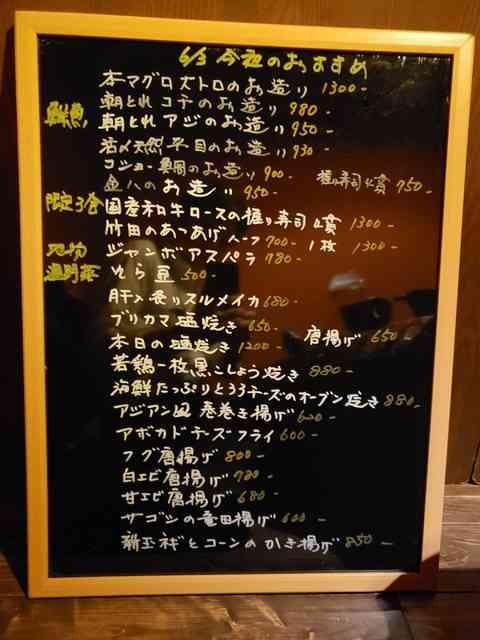 6/3 今夜のおすすめ
本マグロズトロのお造り 1300-
朝とれ コチのお造り 980-
鮮魚 朝とれ アジのお造り 950-
活〆天然 平目のお造り 930-
コショー鯛のお造り 900- 握り寿司4貫 750-
金八のお造り 950-
限定3食 国産和牛ロースの握り寿司4貫 1300-
竹田のあつあげ ハーフ 700- 1枚 1300-
地物 ジャンボアスパラ 780-
温野菜 そら豆 500-
肝入り炙りスルメイカ 680-
ブリカマ塩焼き 650- 唐揚げ 650-
本日の塩焼き 1200-
若鶏一枚黒こしょう焼き 880-
海鮮たっぷりとろろチーズのオーブン焼き 880-
アジアン風 春巻き揚げ 620-
アボカドチーズフライ 600-
フグ唐揚げ 800-
白エビ唐揚げ 780-
甘エビ唐揚げ 680-
サゴシの竜田揚げ 600-
新玉ネギとコーンのかき揚げ 850-